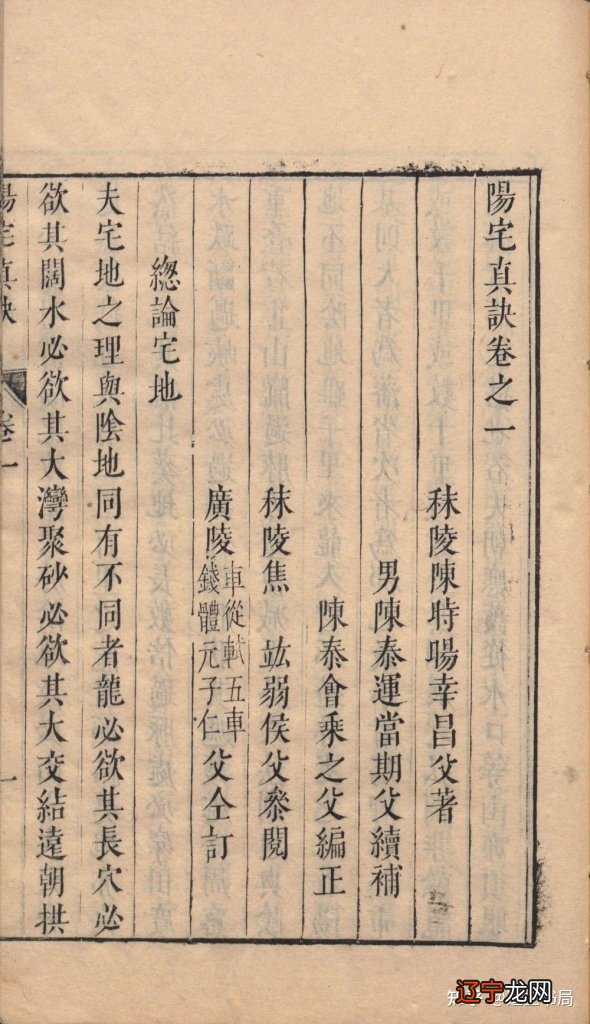 陽宅真訣卷之一
秣陵陳時暘幸昌父著
男陳泰運當期父續補
陳泰會乘之父編正
秣陵焦竑弱侯父叅閱
廣陵
車從軾五車
錢體元子仁
父仝訂
總論宅地
夫宅地之理與陰地同有不同者龍必欲其長穴必
欲其闊水必欲其大灣聚砂必欲其大交結遠朝拱
陽宅真訣
卷一
一
知乎
書局
辽宁龙网